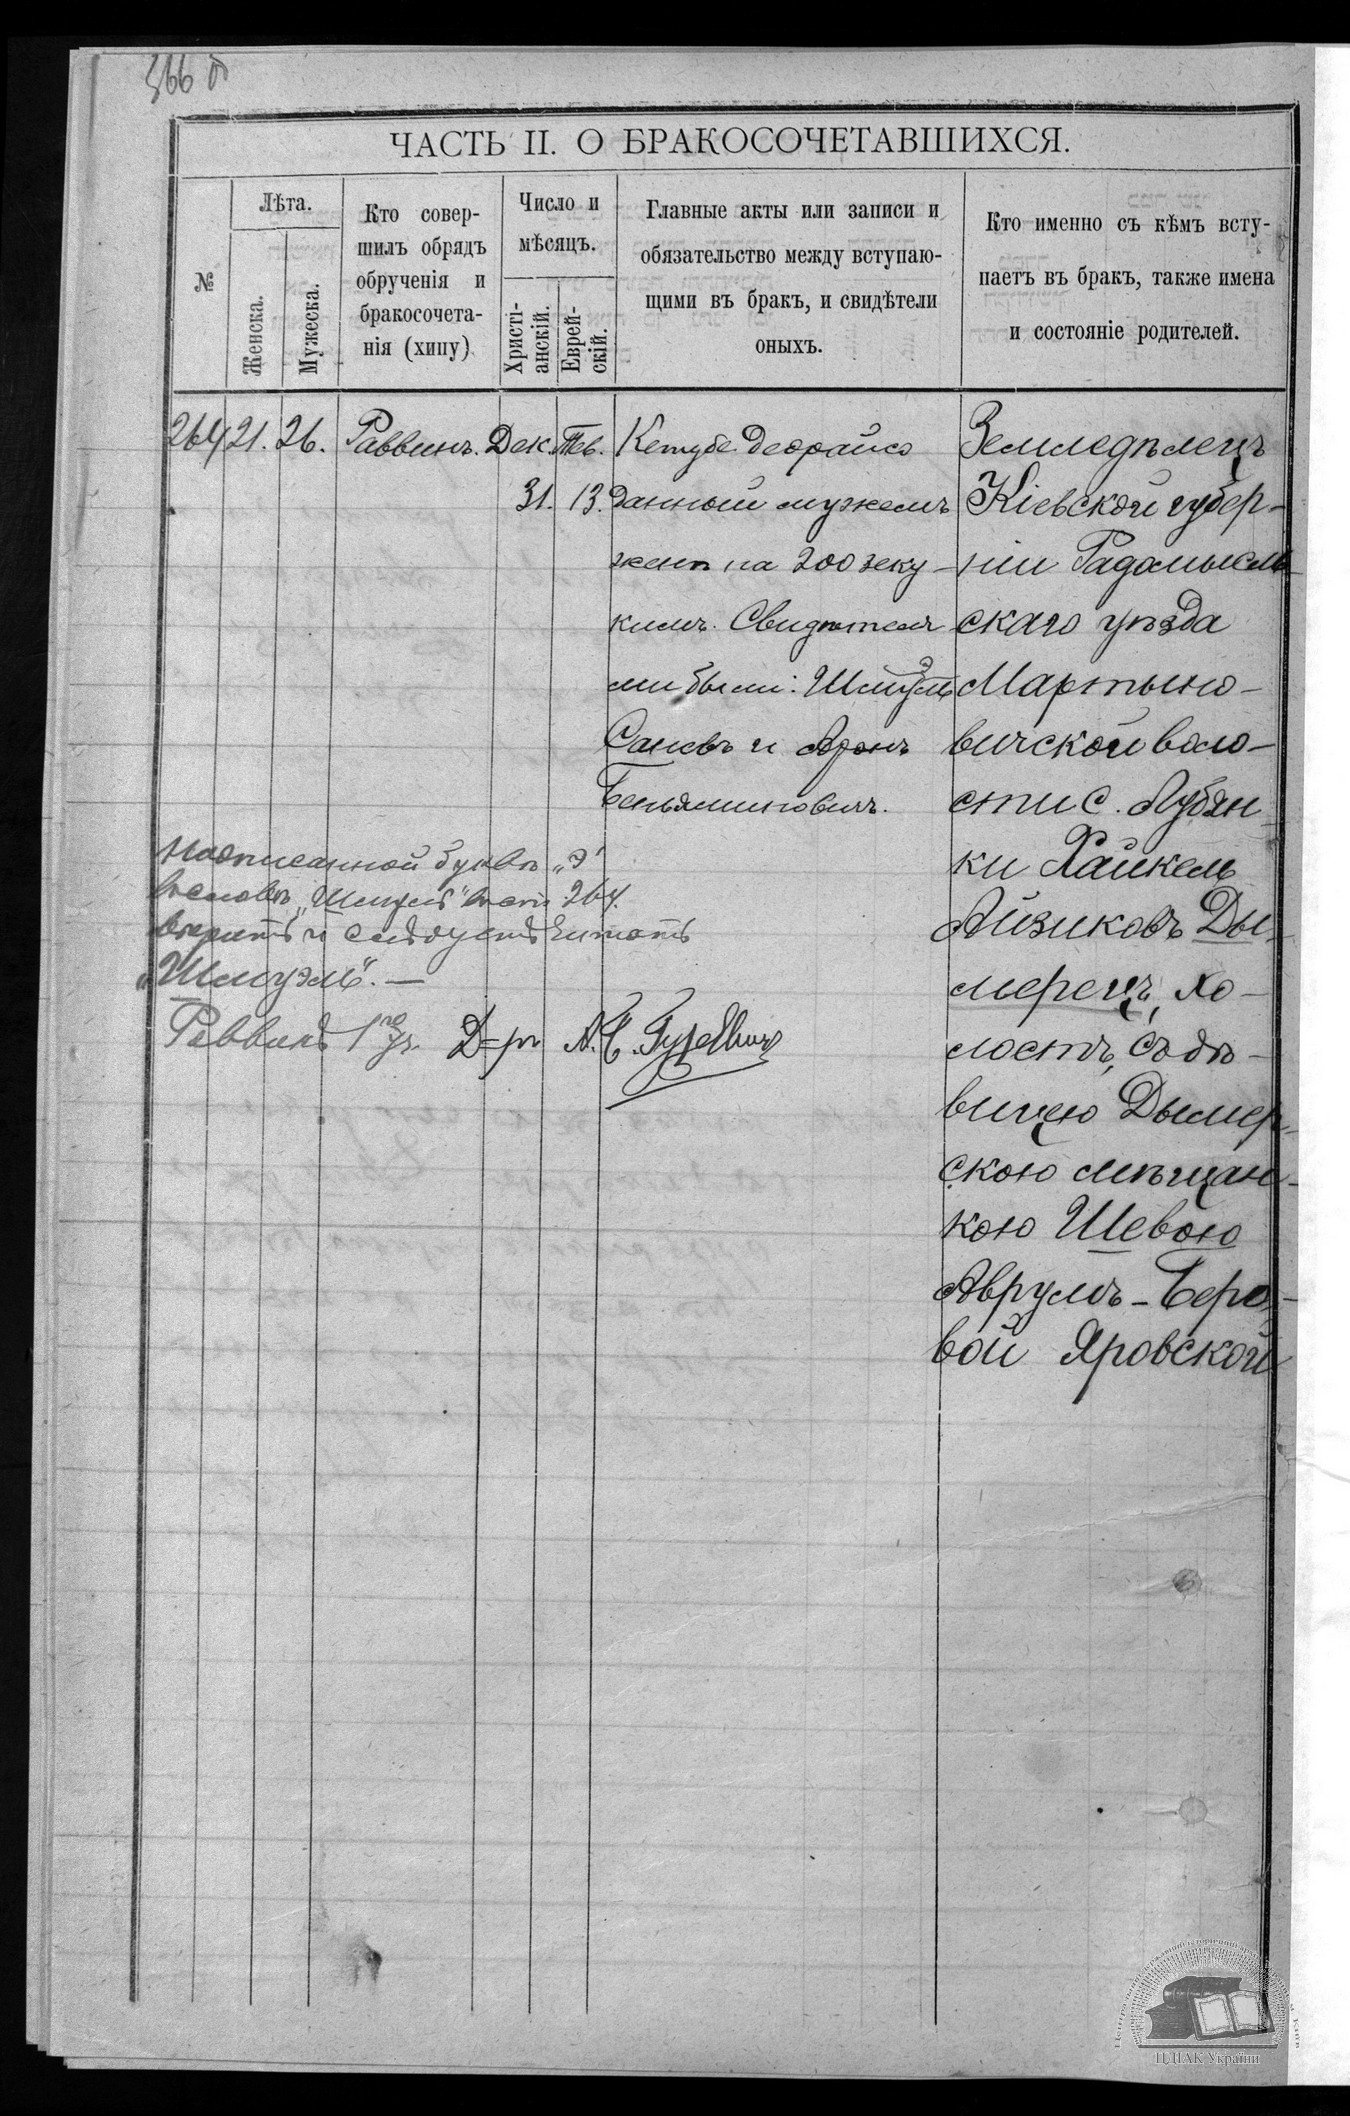 366 б
ЧАСТЬ II. О БРАКОСОЧЕТАВШИХСЯ.
№
Лѣта.
Женска.
Мужеска.
Кто совер-
шилъ обрядъ
обрученія и
бракосочета-
нія (хипу)
Число и
мѣсяцъ.
Христі-
анскій.
Еврей-
скій.
Главные акты или записи и
обязательство между вступаю-
щими въ бракъ, и свидѣтели
оныхъ.
Кто именно съ кѣмъ всту-
паетъ въ бракъ, также имена
и состояніе родителей.
264 21. 26. Раввинъ. Дек. Тев.
31. 13.
Кетубе деорайсо
данный мужемъ
женѣ на 200 зеку-
кимъ. Свидѣтеля
ми были: Шмуэль
Саневъ и Аронъ
Беньяминовичъ.
Земледѣлецъ
Кіевской губер-
ніи Радомысль-
скаго уѣзда
Мартыно-
вичской воло-
сти с. Лубян-
ки Хайкель
Айзиковъ Ды-
мерецъ, хо-
лостъ, съ дѣ-
вицею Дымер-
скою мѣщан-
кою Шевою
Аврумъ-Беро-
вой Яровской
Надписанной буквѣ „э"
въ словѣ „Шмуль" въ ст. 264.
вѣрить и слѣдуетъ читать
„Шмуэль". —
Раввинъ 1го уч. Д=ръ А. Гуревич
ЦДІАК України